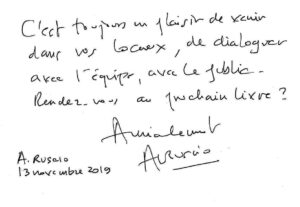 C'est toujours un plaisir de venir
dans vos locaux, de dialoguer
avec l'équipe, avec le public.
Rendez-vous au prochain livre ?
Amicalement
A. Ruscio
A Ruscio
13 novembre 2019